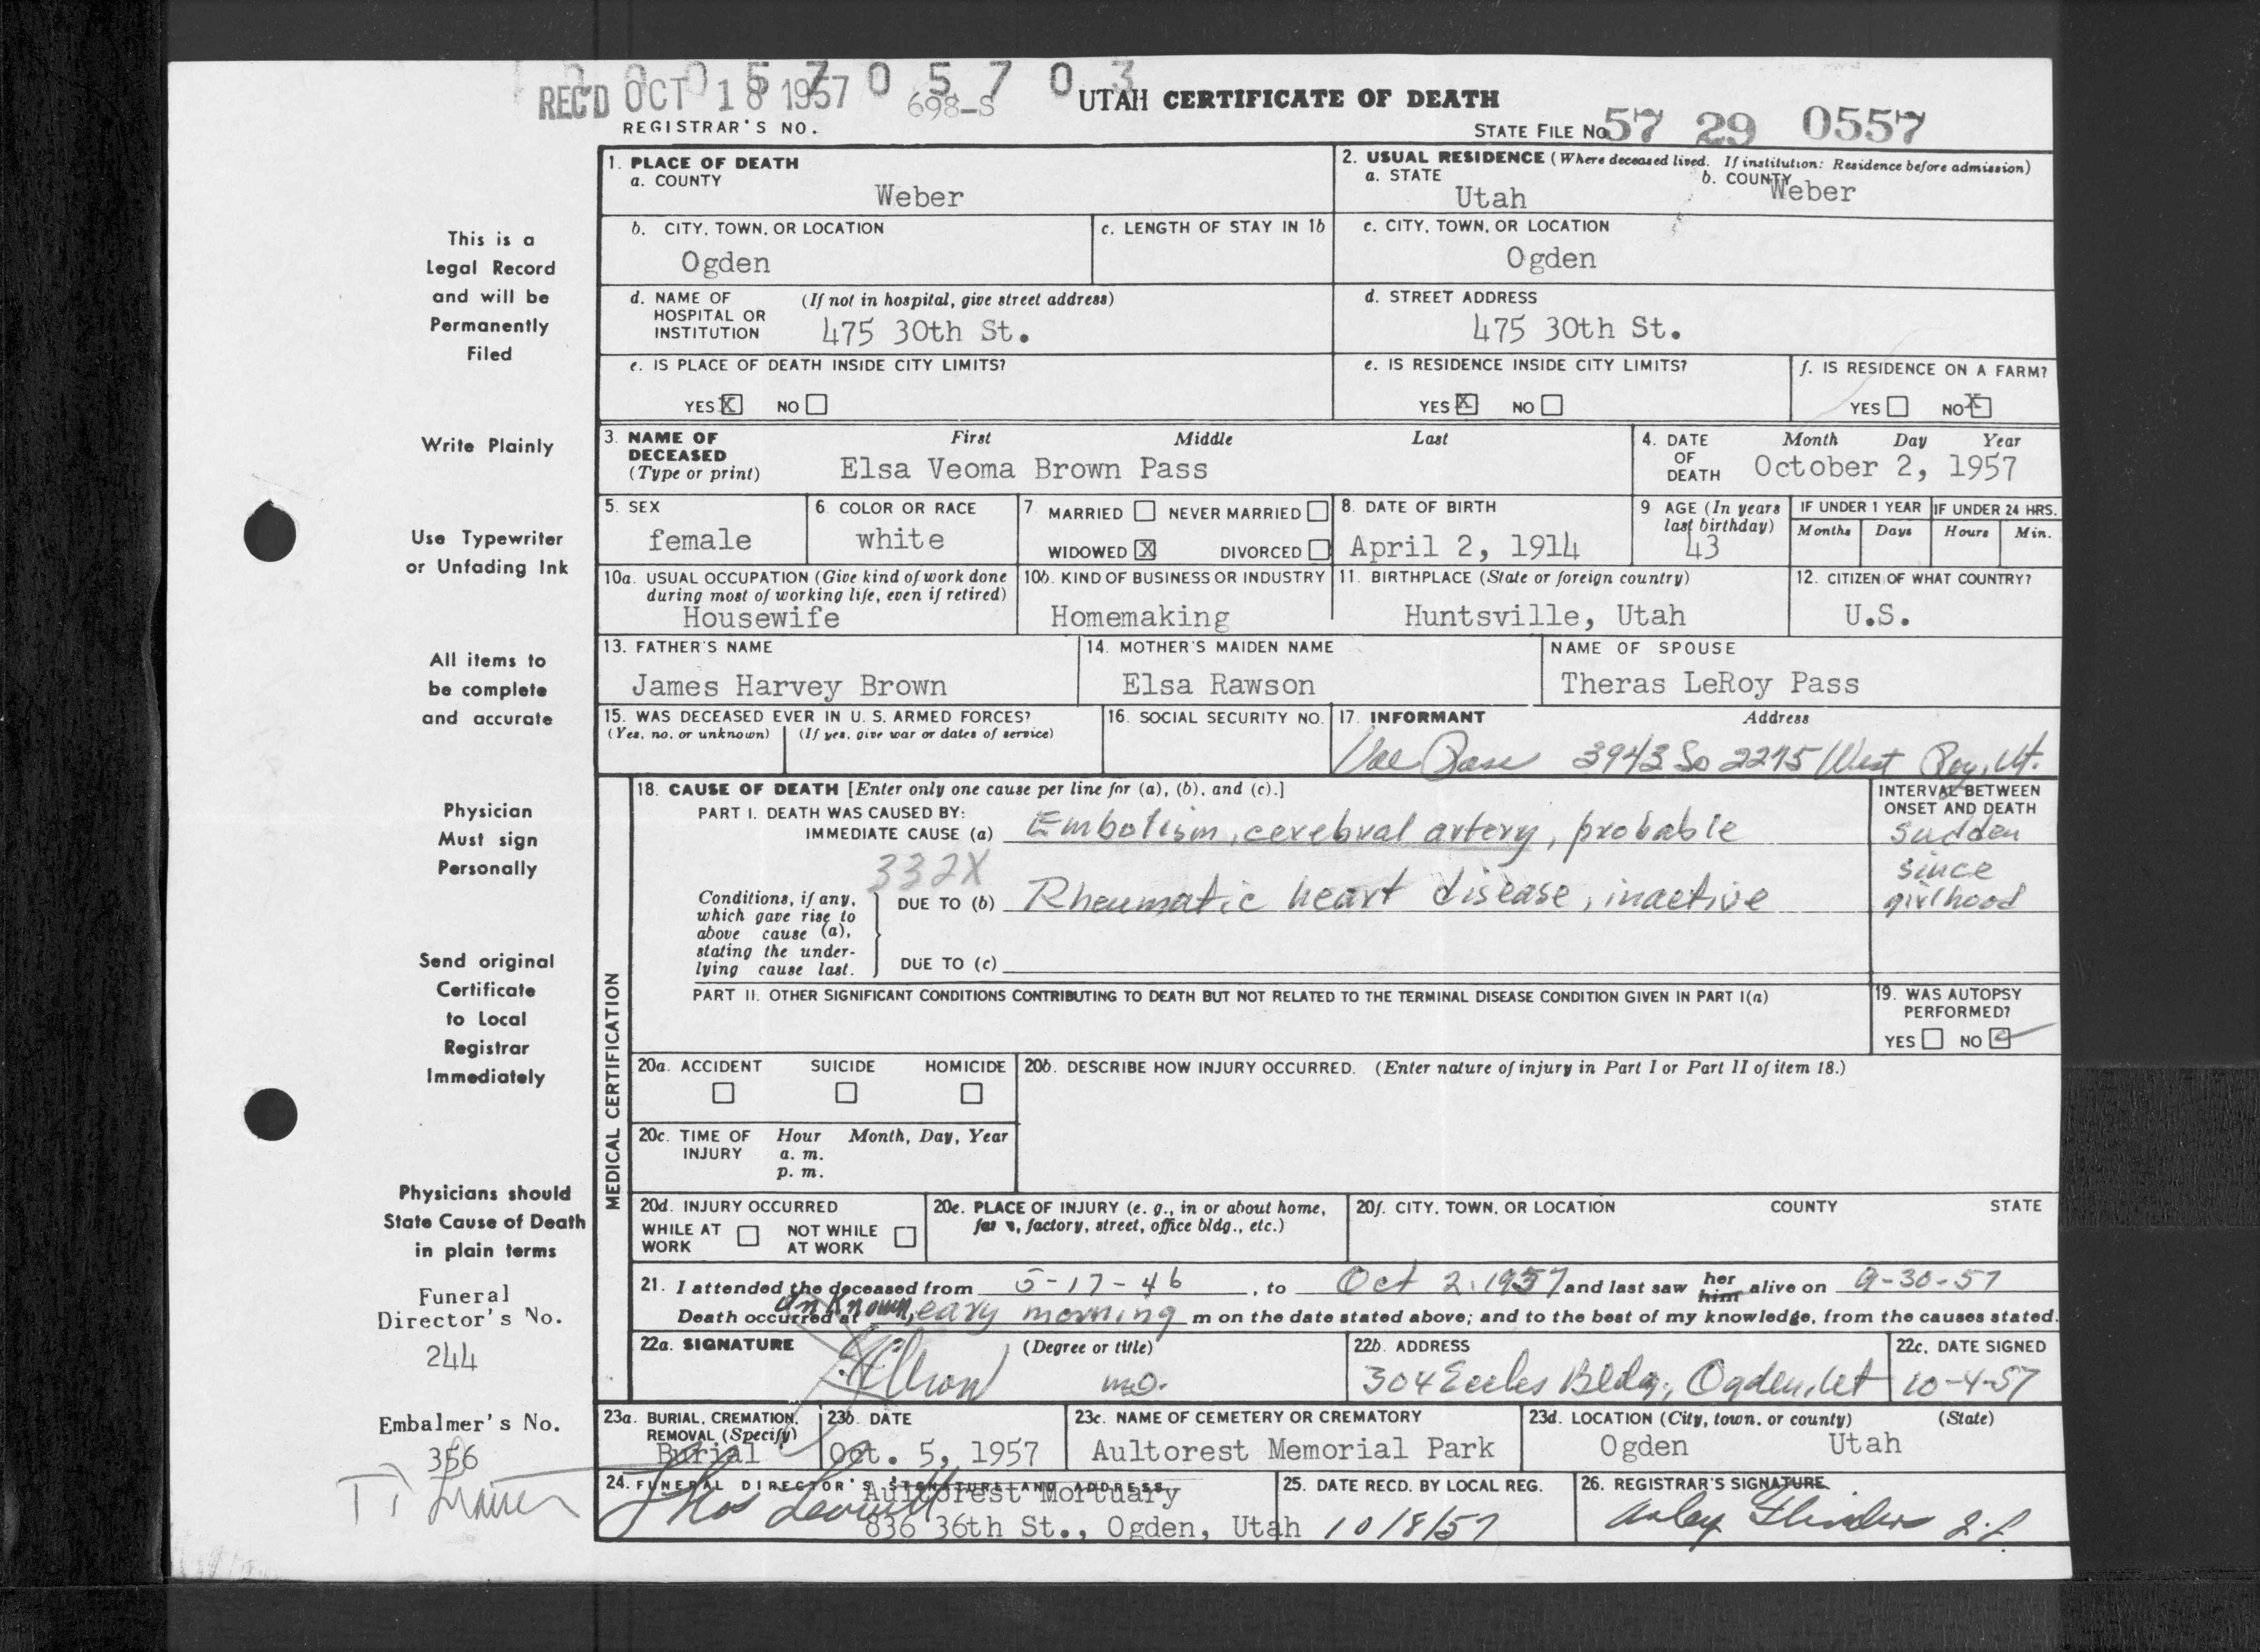 REC'D OCT 18 1957
0 0 0 5 7 0 5 7 0 3
698-S
UTAH CERTIFICATE OF DEATH
REGISTRAR'S NO.
STATE FILE NO. 57 29 0557
1. PLACE OF DEATH
a. COUNTY
Weber
2. USUAL RESIDENCE (Where deceased lived. If institution: Residence before admission)
a. STATE
Utah
b. COUNTY
Weber
b. CITY, TOWN, OR LOCATION
Ogden
c. LENGTH OF STAY IN 1b
c. CITY, TOWN, OR LOCATION
Ogden
d. NAME OF HOSPITAL OR INSTITUTION
(If not in hospital, give street address)
475 30th St.
d. STREET ADDRESS
475 30th St.
e. IS PLACE OF DEATH INSIDE CITY LIMITS?
YES X NO
e. IS RESIDENCE INSIDE CITY LIMITS?
YES X NO
f. IS RESIDENCE ON A FARM?
YES NO X
3. NAME OF DECEASED (Type or print)
First Middle Last
Elsa Veoma Brown Pass
4. DATE OF DEATH
Month Day Year
October 2, 1957
5. SEX
female
6. COLOR OR RACE
white
7 MARRIED NEVER MARRIED
WIDOWED X DIVORCED
8. DATE OF BIRTH
April 2, 1914
9 AGE (In years last birthday)
43
IF UNDER 1 YEAR
Months Days
IF UNDER 24 HRS.
Hours Min.
10a. USUAL OCCUPATION (Give kind of work done during most of working life, even if retired)
Housewife
10b. KIND OF BUSINESS OR INDUSTRY
Homemaking
11. BIRTHPLACE (State or foreign country)
Huntsville, Utah
12. CITIZEN OF WHAT COUNTRY?
U.S.
13. FATHER'S NAME
James Harvey Brown
14. MOTHER'S MAIDEN NAME
Elsa Rawson
NAME OF SPOUSE
Theras LeRoy Pass
15. WAS DECEASED EVER IN U. S. ARMED FORCES?
(Yes, no, or unknown) (If yes, give war or dates of service)
16. SOCIAL SECURITY NO.
17. INFORMANT Address
Pass 3943 So 2275 West Roy, Ut.
MEDICAL CERTIFICATION
18. CAUSE OF DEATH [Enter only one cause per line for (a), (b), and (c).]
PART I. DEATH WAS CAUSED BY:
IMMEDIATE CAUSE (a) Embolism, cerebral artery, probable
332X
Conditions, if any, which gave rise to above cause (a), stating the underlying cause last.
DUE TO (b) Rheumatic heart disease, inactive
DUE TO (c)
INTERVAL BETWEEN ONSET AND DEATH
sudden
since
girlhood
PART II. OTHER SIGNIFICANT CONDITIONS CONTRIBUTING TO DEATH BUT NOT RELATED TO THE TERMINAL DISEASE CONDITION GIVEN IN PART I(a)
19. WAS AUTOPSY PERFORMED?
YES NO
20a. ACCIDENT SUICIDE HOMICIDE
20b. DESCRIBE HOW INJURY OCCURRED. (Enter nature of injury in Part I or Part II of item 18.)
20c. TIME OF INJURY
Hour Month, Day, Year
a. m.
p. m.
20d. INJURY OCCURRED
WHILE AT WORK NOT WHILE AT WORK
20e. PLACE OF INJURY (e. g., in or about home, farm, factory, street, office bldg., etc.)
20f. CITY, TOWN, OR LOCATION COUNTY STATE
21. I attended the deceased from 5-17-46, to Oct 2, 1957 and last saw her him alive on 9-30-57
Death occurred at unknown, eary morning m on the date stated above; and to the best of my knowledge, from the causes stated.
22a. SIGNATURE (Degree or title)
M.D.
22b. ADDRESS
304 Eccles Bldg., Ogden, Ut
22c. DATE SIGNED
10-4-57
23a. BURIAL, CREMATION, REMOVAL (Specify)
Burial
23b. DATE
Oct. 5, 1957
23c. NAME OF CEMETERY OR CREMATORY
Aultorest Memorial Park
23d. LOCATION (City, town, or county) (State)
Ogden Utah
24. FUNERAL DIRECTOR'S SIGNATURE AND ADDRESS
Aultorest Mortuary
836 36th St., Ogden, Utah
25. DATE RECD. BY LOCAL REG.
10/8/57
26. REGISTRAR'S SIGNATURE
This is a
Legal Record
and will be
Permanently
Filed
Write Plainly
Use Typewriter
or Unfading Ink
All items to
be complete
and accurate
Physician
Must sign
Personally
Send original
Certificate
to Local
Registrar
Immediately
Physicians should
State Cause of Death
in plain terms
Funeral
Director's No.
244
Embalmer's No.
356